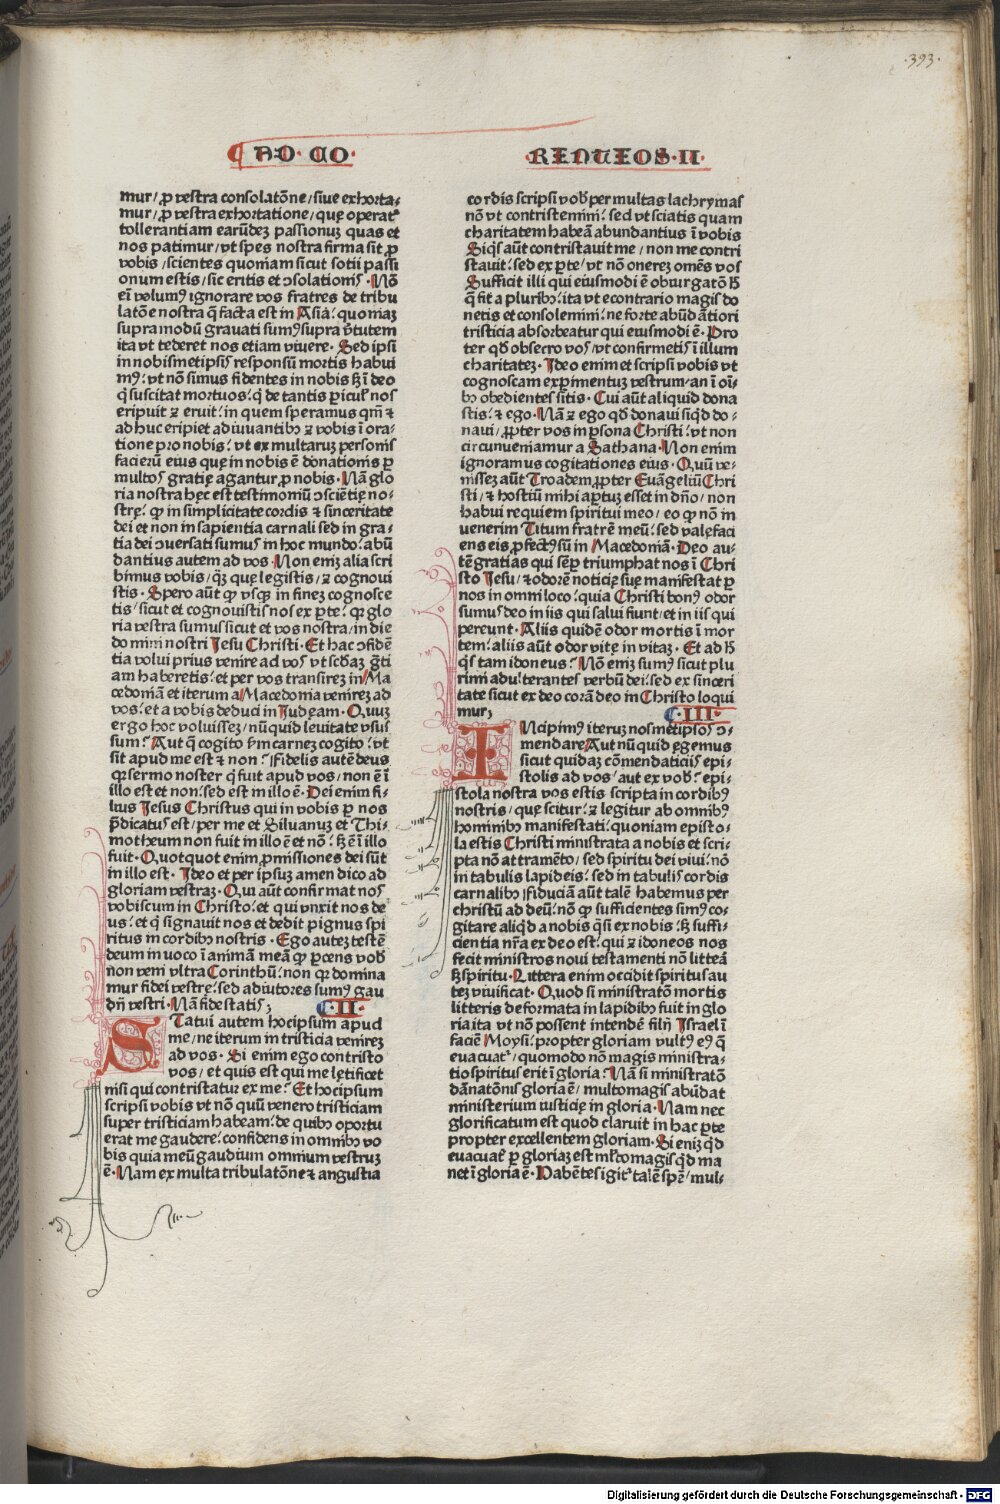 ·393·
AD·CO·
·RENTEOS·II·
mur/ ꝓ vestra consolatōne/ siue exhorta-
mur/ ꝓ vestra exhortatione/ quę operat᷒
tollerantiam earūdeꝫ passionuꝫ quas et
nos patimur/ vt spes nostra firma sit ꝓ
vobis/ scientes quoniam sicut sotii passi
onum estis/ sic eritis et ↄsolationis· Nō
eī volumꝰ ignorare vos fratres de tribu
latōe nostra q̄ facta est in Asia: quoniaꝫ
supra modū grauati sumꝰ supra v̄tutem
ita vt tederet nos etiam viuere· Sed ipsi
in nobismetipsis responsū mortis habui
mꝰ: vt nō simus fidentes in nobis sꝫ ī deo
q̄ suscitat mortuos: q̄ de tantis ꝑiculis nos
eripuit ⁊ eruit: in quem speramus qm̄ ⁊
ad huc eripiet adiuuantibꝫ ⁊ vobis ī ora-
tione pro nobis: vt ex multaruꝫ personis
facierū eius quę in nobis ē donationis ꝑ
multos gratię agantur ꝓ nobis· Nā glo
ria nostra hęc est testimoniū ↄsciētię no-
strę· ꝙ in simplicitate cordis ⁊ sinceritate
dei et non in sapientia carnali sed in gra-
tia dei ↄuersati sumus in hoc mundo: abū
dantius autem ad vos· Non eniꝫ alia scri
bimus vobis/ q̄ꝫ quę legistis/ ⁊ cognoui
stis· Spero aūt ꝙ vsꝙ in fineꝫ cognosce
tis/ sicut et cognouistis nos ex ꝑte: qꝛ glo
ria vestra sumus sicut et vos nostra/ in die
domini nostri Jesu Christi· Et hac ↄfidē
tia volui prius venire ad vos vt scd̄aꝫ grāti
am haberetis: et per vos transireꝫ in Ma
cedoniā et iterum a Macedonia venireꝫ ad
vos: et a vobis deduci in Judęam· Quuꝫ
ergo hoc voluisseꝫ/ nūquid leuitate vsus
sum? Aut q̄ cogito s̄m carneꝫ cogito: vt
sit apud me est ⁊ non? Fidelis autē deus
qꝛ sermo noster q̄ fuit apud vos/ non ē ī
illo est et non: sed est in illo ē· Dei enim fi-
lius Jesus Christus qui in vobis ꝑ nos
p̄dicatus est/ per me et Siluanuꝫ et Thi-
motheum non fuit in illo ē et nō: sꝫ ē ī illo
fuit· Quotquot enim ꝓmissiones dei sūt
in illo est· Ideo et per ipsuꝫ amen dico ad
gloriam vestraꝫ· Qui aūt confirmat nos
vobiscum in Christo: et qui vnxit nos de
us: et q̄ signauit nos et dedit pignus spi
ritus in cordibꝫ nostris· Ego auteꝫ testē
deum inuoco ī animā meā ꝙ ꝑcens vob̄
non veni vltra Corinthū: non qꝛ domina
mur fidei vestrę: sed adiutores sumꝰ gau
dij vestri· Nā fide statis;
·II·
STatui autem hoc ipsum apud
me/ ne iterum in tristicia venireꝫ
ad vos· Si enim ego contristo
vos/ et quis est qui me lętificet
nisi qui contristatur ex me? Et hoc ipsum
scripsi vobis vt nō quū venero tristiciam
super tristiciam habeam: de quibꝫ oportu
erat me gaudere: confidens in omnibꝫ vo
bis quia meū gaudium omnium vestruꝫ
ē· Nam ex multa tribulatōne ⁊ angustia
cordis scripsi vob̄ per multas lachrymas
nō vt contristemini: sed vt sciatis quam
charitatem habeā abundantius ī vobis
Si q̄s aūt contristauit me/ non me contri
stauit: sed ex ꝑte/ vt nō onereꝫ omēs vos
Sufficit illi qui eiusmodi ē obiurgatō h̄
q̄ fit a pluribꝫ: ita vt econtrario magis do
netis et consolemini: ne forte abūdātiori
tristicia absorbeatur qui eiusmodi ē· Pro
ter qd̄ obsecro vos/ vt confirmetis ī illum
charitateꝫ· Ideo enim et scripsi vobis vt
cognoscam exꝑimentuꝫ vestrum/ an ī oī-
bꝫ obedientes sitis· Cui aūt aliquid dona
stis: ⁊ ego· Nā ⁊ ego qd̄ donaui siq̄d do-
naui/ ꝓpter vos in ꝑsona Christi: vt non
circunueniamur a Sathana· Non enim
ignoramus cogitationes eius· Quū ve-
nisseꝫ aūt Troadem ꝓpter Euāgeliū Chri
sti/ ⁊ hostiū mihi aꝑtuꝫ esset in dn̄o/ non
habui requiem spiritui meo/ eo ꝙ nō in
uenerim Titum fratrē meū: sed valefaci
ens eis ꝓfectꝰ sū in Macedoniā· Deo au-
tē gratias qui sēꝑ triumphat nos ī Chri
sto Jesu/ ⁊ odorē noticię suę manifestat ꝑ
nos in omni loco: quia Christi bonꝰ odor
sumus deo in iis qui salui fiunt/ et in iis qui
pereunt· Aliis quidē odor mortis ī mor
tem: aliis aūt odor vitę in vitaꝫ· Et ad h̄
q̄s tam idoneus? Nō eniꝫ sumꝰ sicut plu
rimi adulterantes verbū dei: sed ex sinceri
tate sicut ex deo corā deo in Christo loqui
mur;
·III·
INcipimꝰ iteruꝫ nosmetipsos ↄ-
mendare/ Aut nūquid ęgemus
sicut quidaꝫ cōmendaticiis epi-
stolis ad vos/ aut ex vob̄? epi-
stola nostra vos estis scripta in cordibꝰ
nostris/ quę scitur: ⁊ legitur ab omnibꝰ
hominibꝫ manifestati: quoniam episto-
la estis Christi ministrata a nobis et scri-
pta nō attramēto/ sed spiritu dei viui: nō
in tabulis lapideis: sed in tabulis cordis
carnalibꝫ Fiduciā aūt talē habemus per
christū ad deū: nō ꝙ sufficientes simꝰ co-
gitare aliq̄d a nobis q̄si ex nobis: sꝫ suffi-
cientia nr̄a ex deo est: qui ⁊ idoneos nos
fecit ministros noui testamenti nō litterā
sꝫ spiritu· Littera enim occidit spiritus au
teꝫ viuificat· Quod si ministratō mortis
litteris deformata in lapidibꝫ fuit in glo
ria: ita vt nō possent intendē filij Israel ī
faciē Moysi: propter gloriam vultꝰ eꝰ q̄
euacuat᷒/ quomodo nō magis ministra-
tio spiritus erit ī gloria? Nā si ministratō
dānatōnis gloria ē/ multomagis abūdat
ministerium iusticię in gloria· Nam nec
glorificatum est quod claruit in hac ꝑte
propter excellentem gloriam· Si eniꝫ q̄d
euacuat᷒ ꝑ gloriaꝫ est ml̄tomagis q̄d ma
net ī gloria ē· Habētes igit᷒ talē spē/ mul-
Digitalisierung gefördert durch die Deutsche Forschungsgemeinschaft · DFG